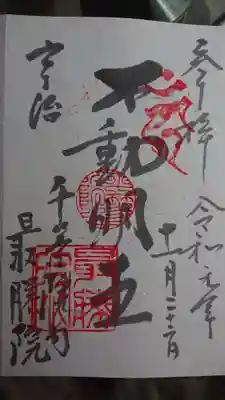 奉拝 令和元年
十一月二十二日
不動明王
宇治
平等院内
最勝院